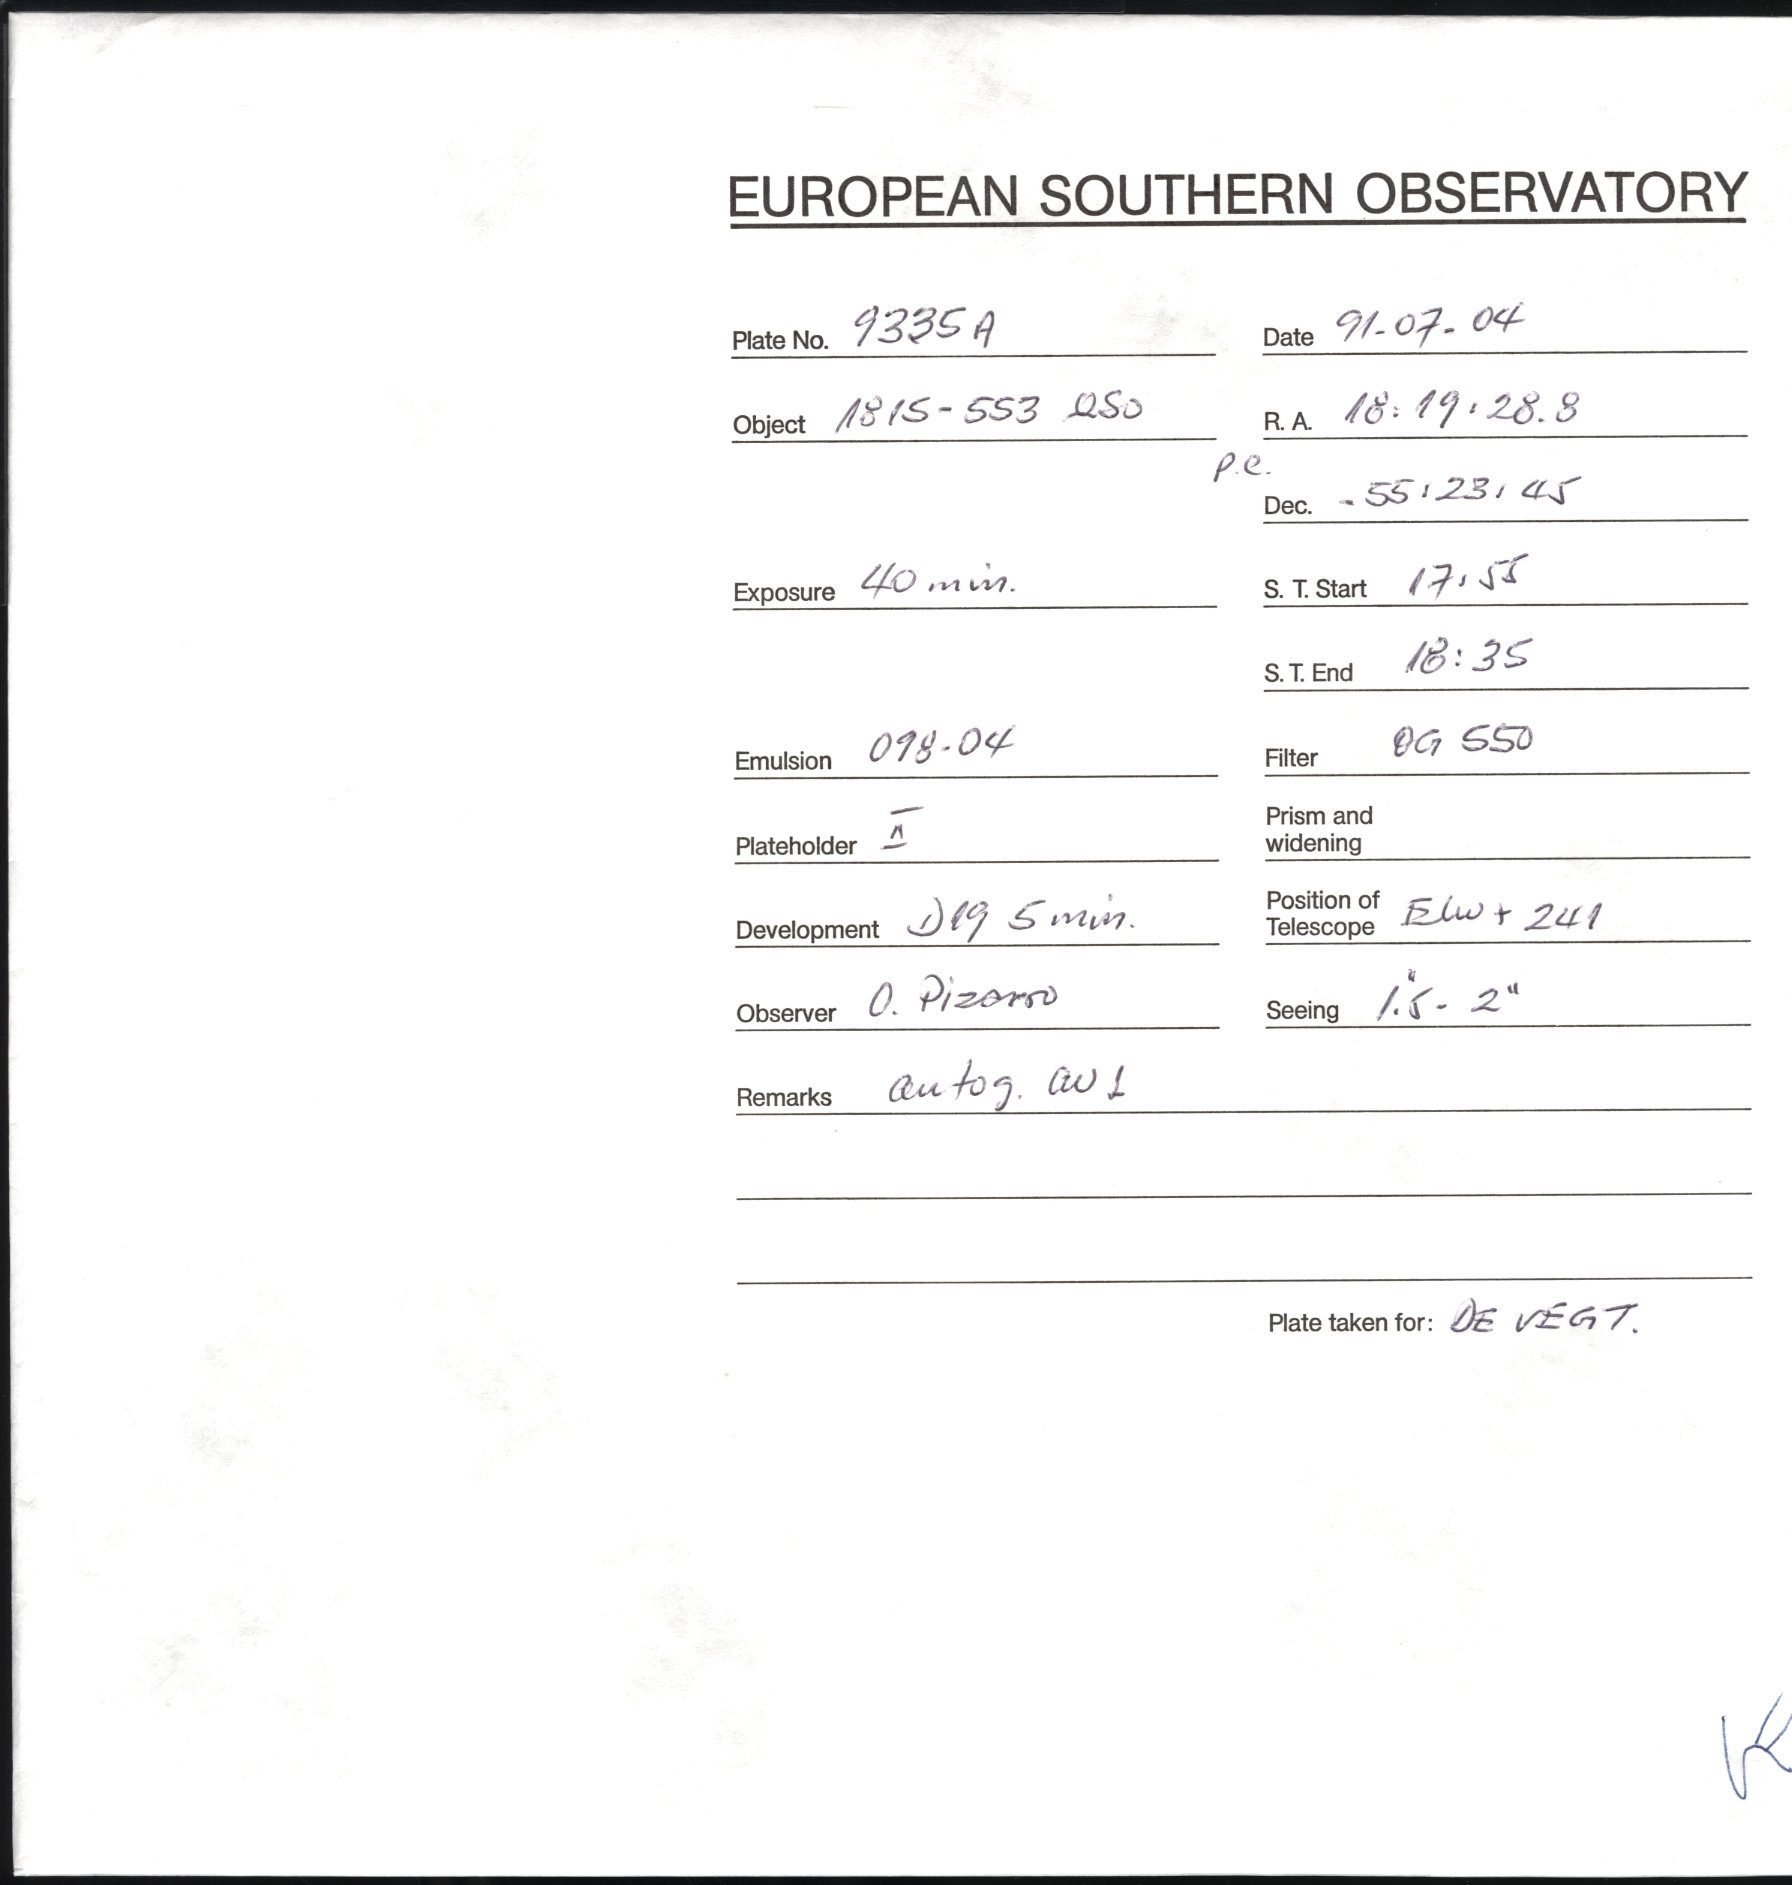 EUROPEAN SOUTHERN OBSERVATORY
Plate No. 9335 A Date 91-07-04
Object 1815-553 QSO R. A. 18:19:28.8
p.e.
Dec. -55:23:45
Exposure 40 min. S. T. Start 17:55
S. T. End 18:35
Emulsion 098-04 Filter OG 550
Plateholder II Prism and
widening
Development D19 5 min. Position of
Telescope + 241
Observer O. Pizarro Seeing 1.5"- 2"
Remarks autog.
Plate taken for: DE VEGT.